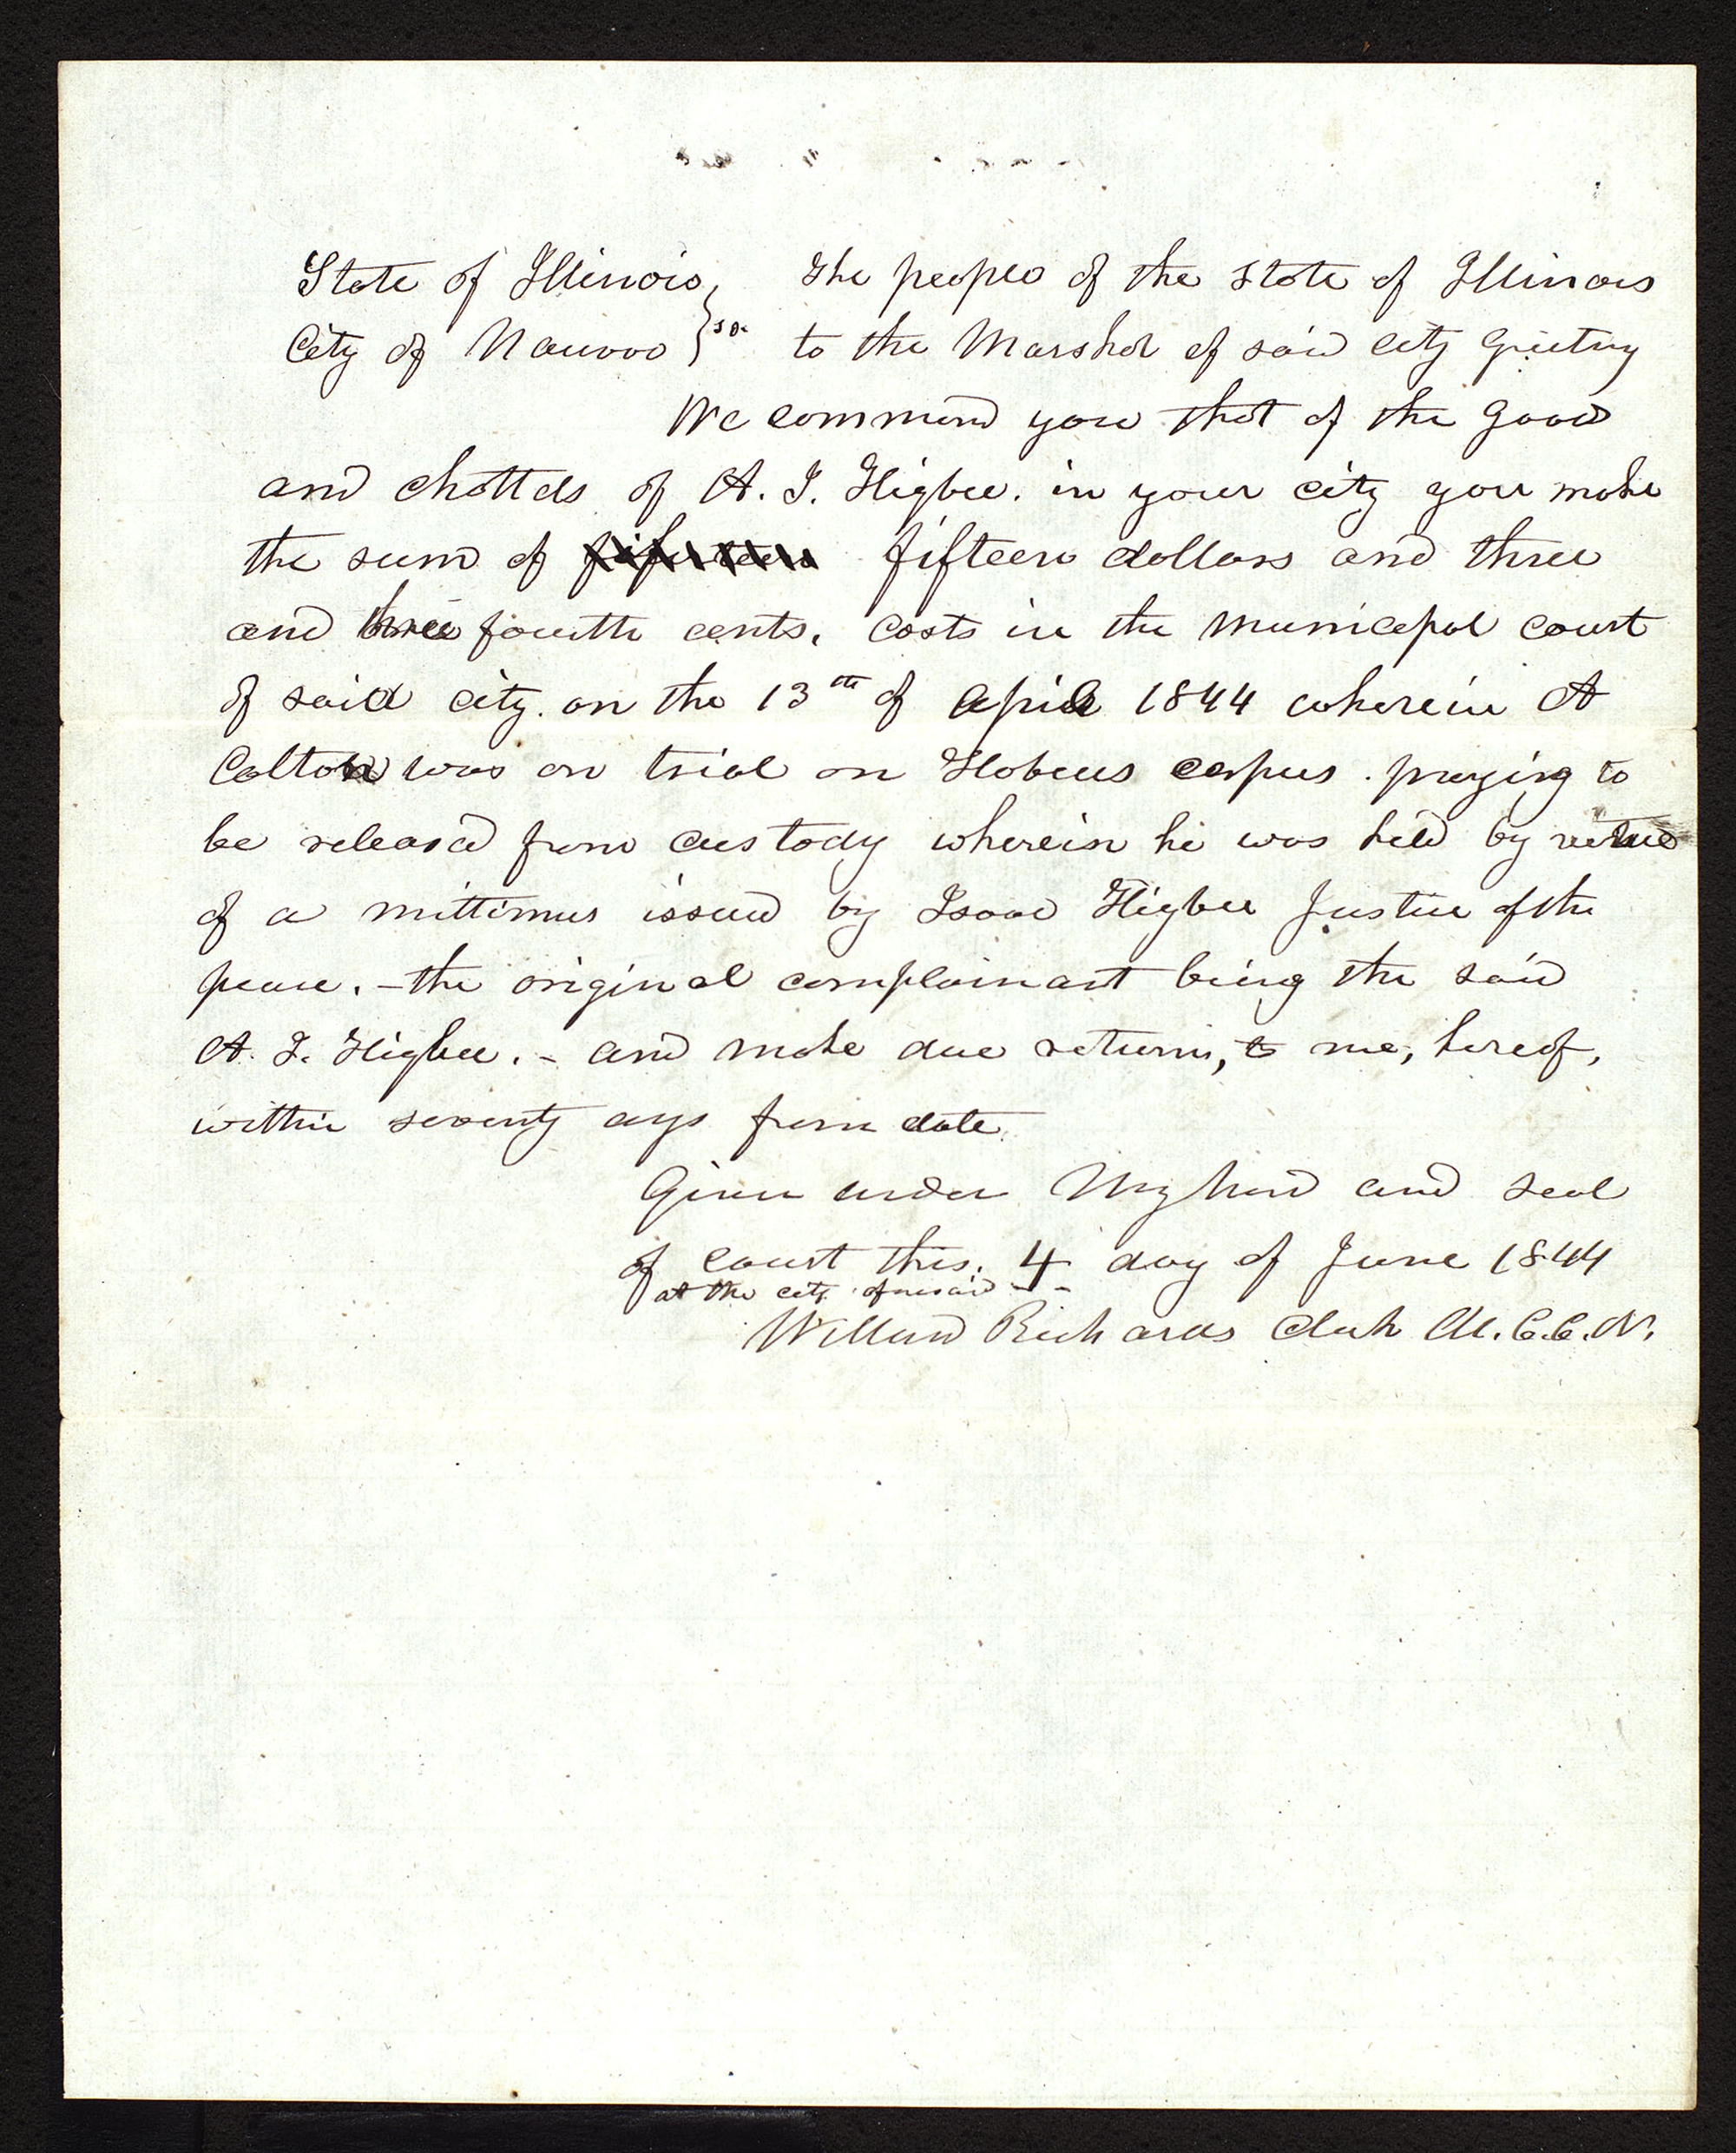 State of Illinois,
City of Nauvoo } ss. The people of the State of Illinois
to the Marshal of said city Greeting
We command you that of the goods
and chattels of A. J. Higbee. in your city you make
the sum of fifteen dollars and three
and three fourth cents. costs in the municipal court
of said city. on the 13th of April 1844 wherein A
Colton was on trial on Habeus corpus. praying to
be released from custody wherein he was held by virtue
of a mittimus issued by Isaac Higbee Justice of the
peace. - the original complainant being the said
A. J. Higbee. - and make due return, to me, hereof,
within seventy ays from date.
Given under My hand and seal
of court this. 4 day of June 1844
at the city aforesaid - -
Willard Richards Clerk M. C. C. N.